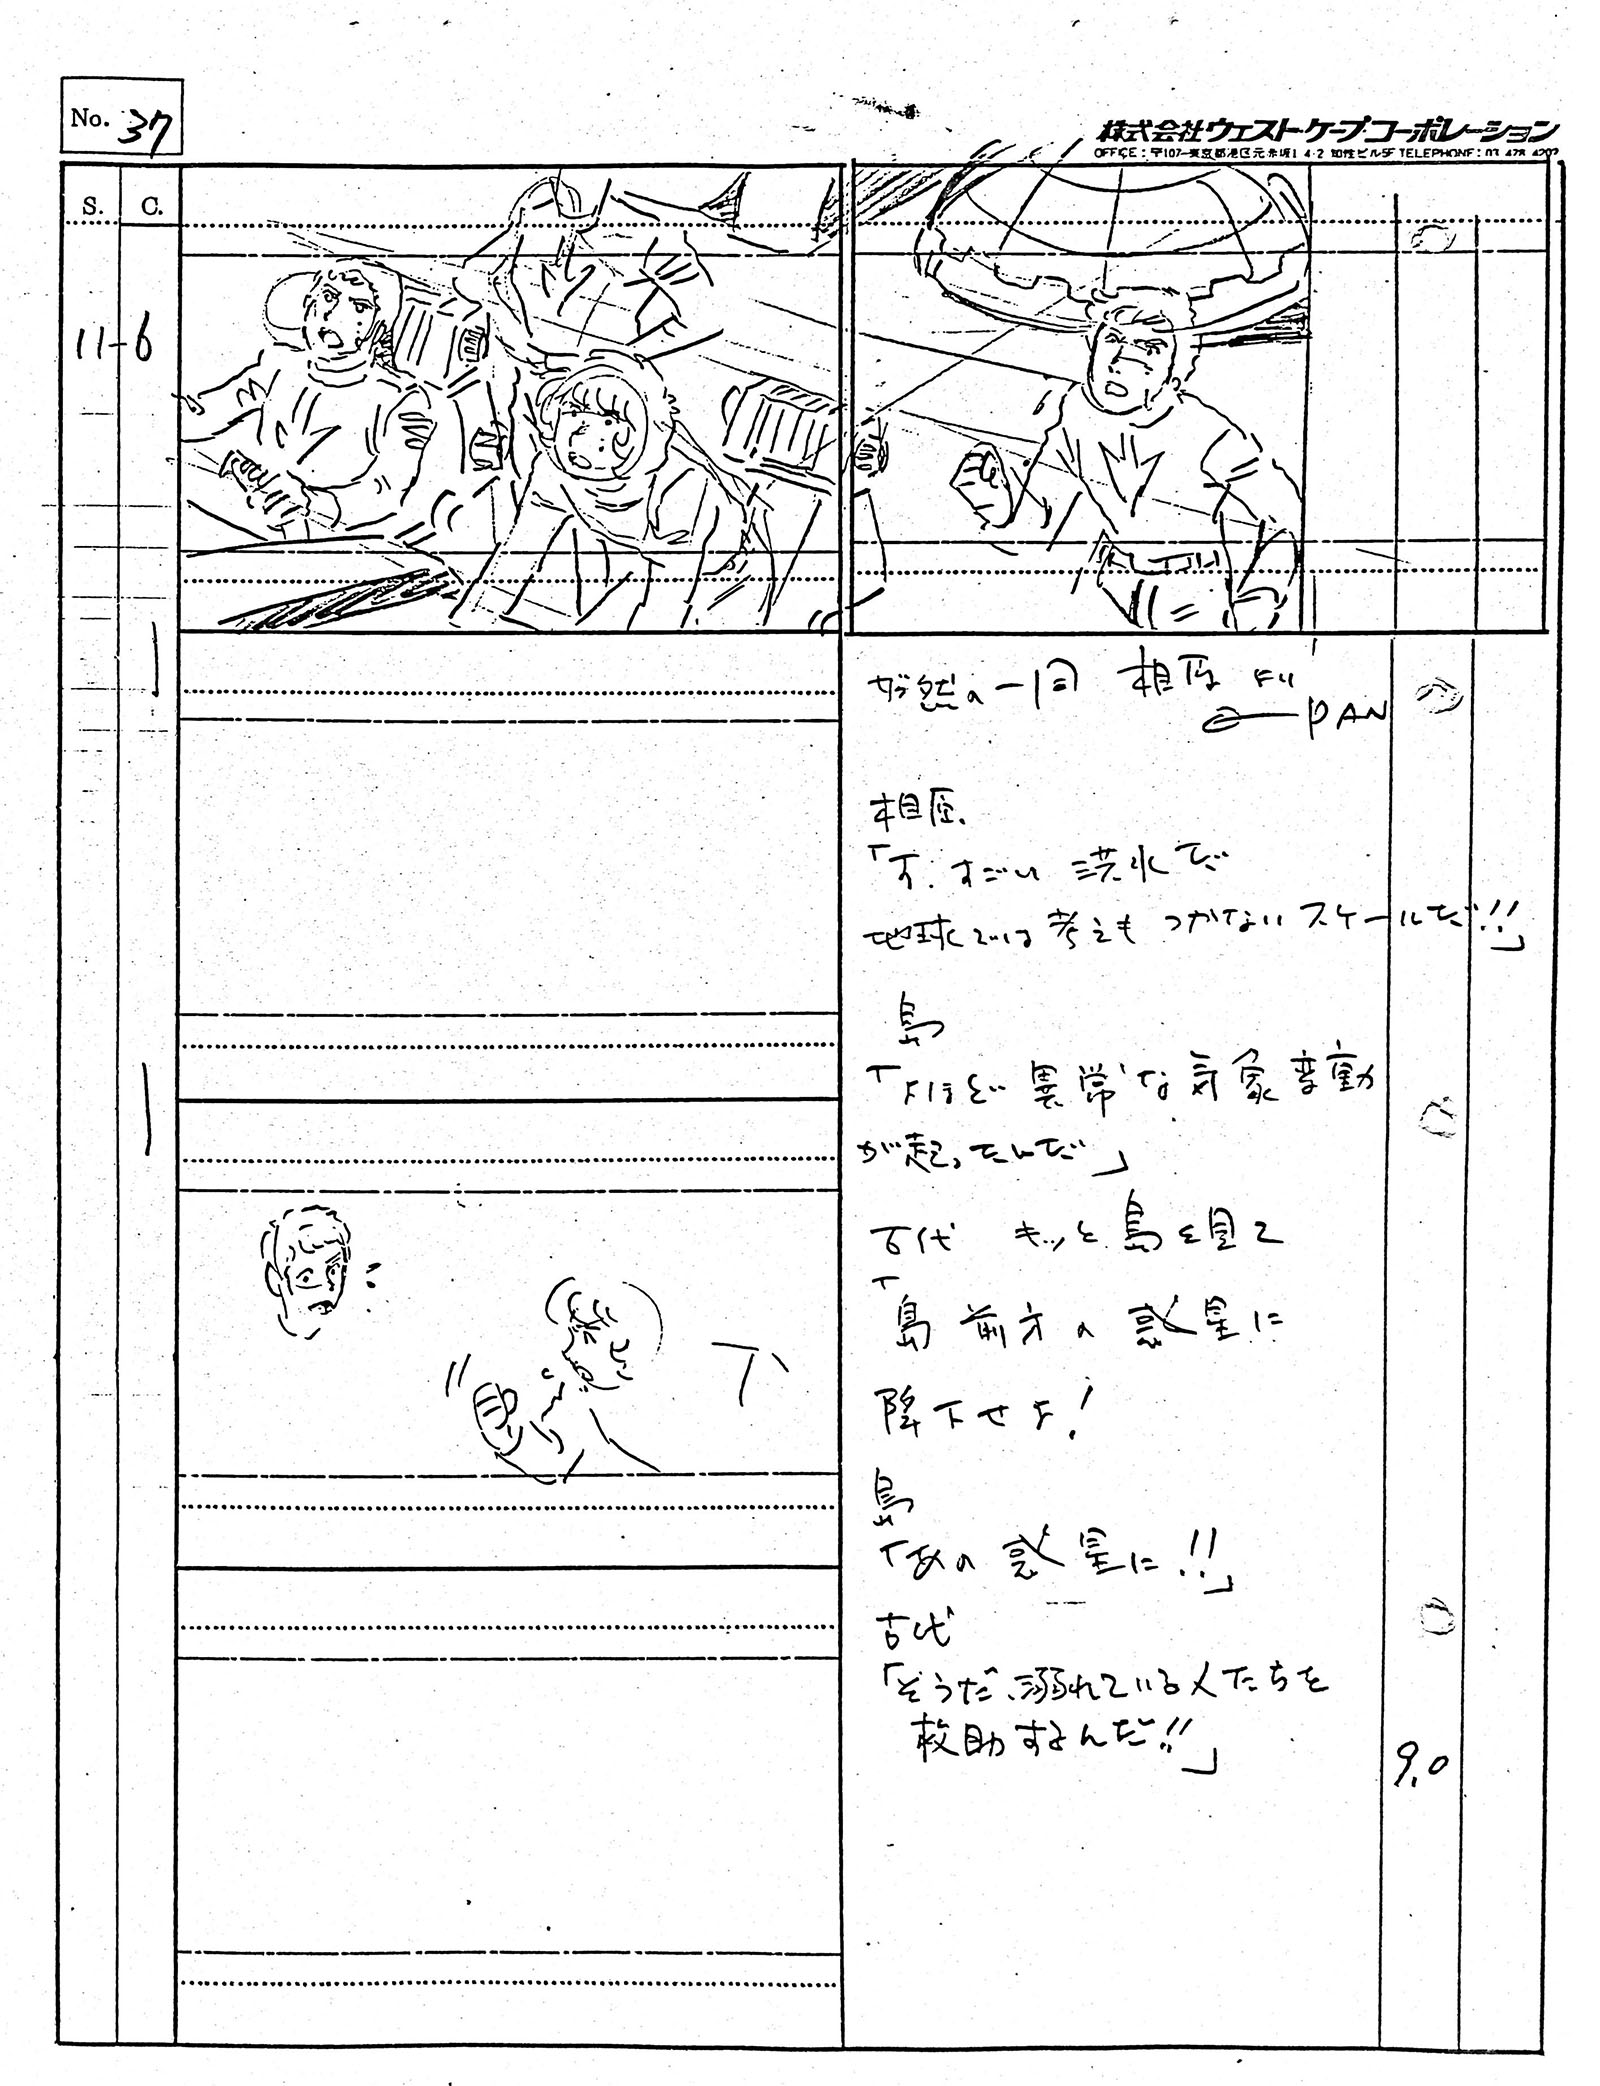 No. 37
株式会社ウェスト・ケープ・コーポレーション
OFFICE : 〒107 東京都港区元赤坂1-4-2 知性ビル5F TELEPHONE : 03
S. C.
11-6
然の一同 相原より
PAN
相原
「す、すごい洪水だ
地球では考えもつかないスケールだ!!」
島
「よほど異常な気象変動
が起ったんだ」
古代 キッと島を見て
「島 前方の惑星に
降下せよ!
島
「あの惑星に!!」
古代
「そうだ、溺れている人たちを
救助するんだ!!」
9.0